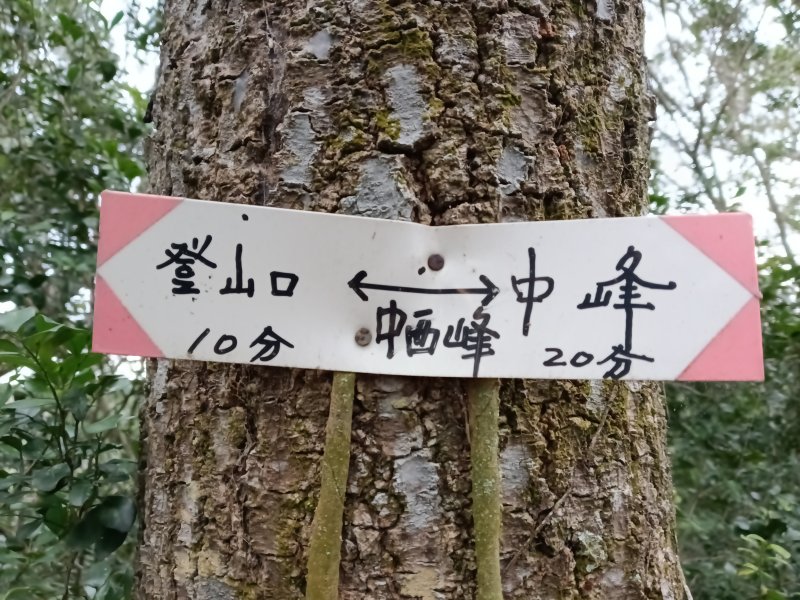 登山口 ←→ 中峰
中西峰
10分 20分